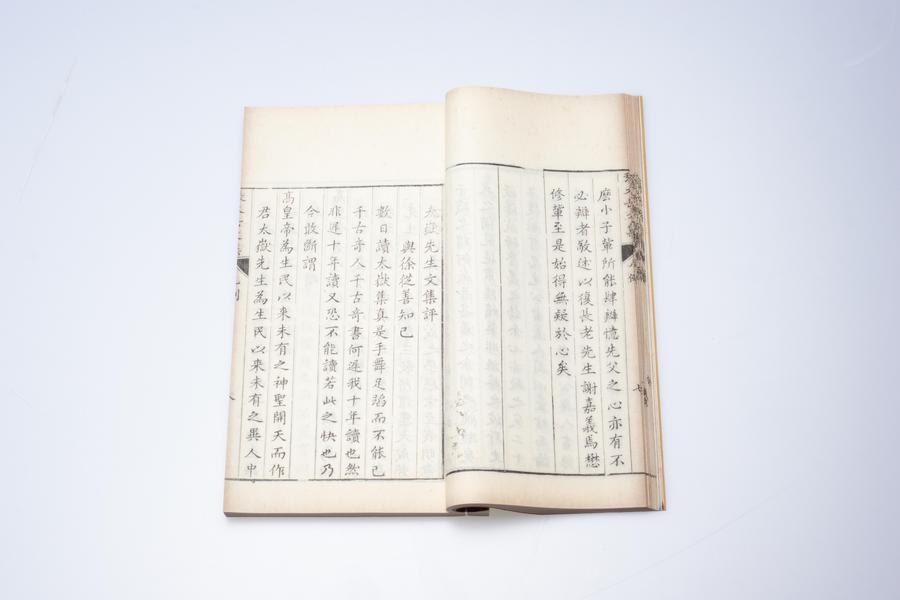 麽小子輩所能肆辯憶先父之心亦有不
必辯者敬述以復長老先生謝嘉義焉懋
修輩至是始得無疑於心矣
太嶽先生文集評
與徐從善知己
數日讀太嶽集真是手舞足蹈而不能已
千古奇人千古奇書何遲我十年讀也然
非遲十年讀又恐不能讀若此之快也乃
今敢斷謂
高皇帝為生民以來未有之神聖開天而作
君太嶽先生為生民以來未有之異人中
八
七